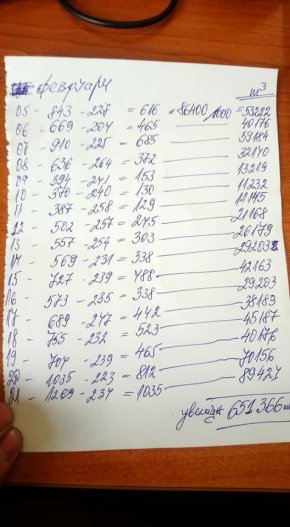 февруари m³
05 - 843 - 227 = 616 × 86400/1000 = 53222
06 - 669 - 204 = 465 — 40176
07 - 910 - 225 = 685 — 59184
08 - 636 - 264 = 372 — 32140
09 - 394 - 241 = 153 — 13219
10 - 370 - 240 = 130 — 11232
11 - 387 - 258 = 129 — 11145
12 - 502 - 257 = 245 — 21168
13 - 557 - 254 = 303 — 26179
14 - 569 - 231 = 338 — 29203
15 - 727 - 239 = 488 — 42163
16 - 573 - 235 = 338 — 29203
17 - 689 - 247 = 442 — 38189
18 - 755 - 232 = 523 — 45187
19 - 704 - 239 = 465 — 40176
20 - 1035 - 223 = 812 — 70156
21 - 1269 - 234 = 1035 — 89424
651366